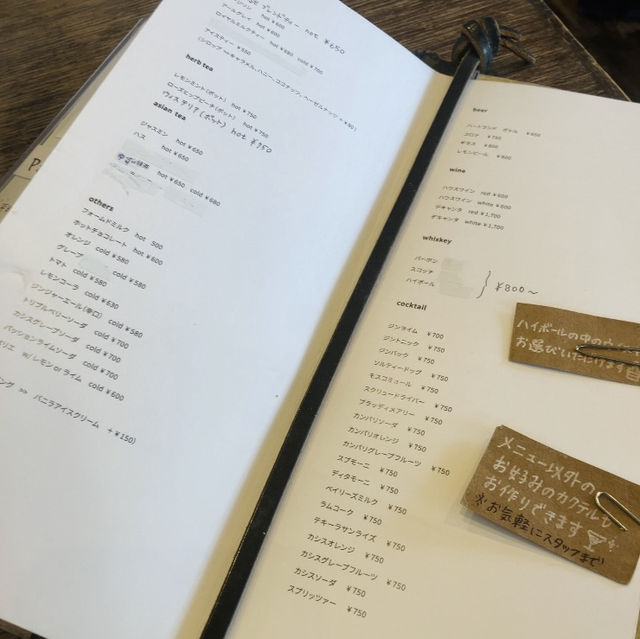 ブレンドティー hot ¥650
hot ¥600
アールグレイ hot ¥600
ロイヤルミルクティー hot ¥680 cold ¥700
アイスティー ¥550
(シロップ >> キャラメル,ハニー,ココナッツ,ヘーゼルナッツ +¥80)
herb tea
レモンミント(ポット) hot ¥750
ローズヒップピーチ(ポット) hot ¥750
ウィステリア(ポット) hot ¥750
asian tea
ジャスミン hot ¥650
ハス hot ¥650
抹茶 hot ¥650 cold ¥680
others
フォームドミルク hot 500
ホットチョコレート hot ¥600
オレンジ cold ¥580
グレープ cold ¥580
トマト cold ¥580
レモンコーラ cold ¥630
ジンジャーエール(辛口) cold ¥580
トリプルベリーソーダ cold ¥700
カシスグレープソーダ cold ¥700
パッションライムソーダ cold ¥700
リエ w/レモン or ライム cold ¥600
ング >> バニラアイスクリーム +¥150)
beer
ハートランド ボトル ¥650
コロナ ¥750
ギネス ¥800
レモンビール ¥800
wine
ハウスワイン red ¥600
ハウスワイン white ¥600
デキャンタ red ¥1,700
デキャンタ white ¥1,700
whiskey
バーボン
スコッチ
ハイボール
¥800〜
cocktail
ジンライム ¥700
ジントニック ¥750
ジンバック ¥750
ソルティードッグ ¥750
モスコミュール ¥750
スクリュードライバー ¥750
ブラッディメアリー ¥750
カンパリソーダ ¥750
カンパリオレンジ ¥750
カンパリグレープフルーツ ¥750
スプモーニ ¥750
ディタモーニ ¥750
ベイリーズミルク ¥750
ラムコーク ¥750
テキーラサンライズ ¥750
カシスオレンジ ¥750
カシスグレープフルーツ ¥750
カシスソーダ ¥750
スプリッツァー ¥750
ハイボールの中のウイ
お選びいただけます
メニュー以外の
お好みのカクテルも
お作りできます
※お気軽にスタッフまで